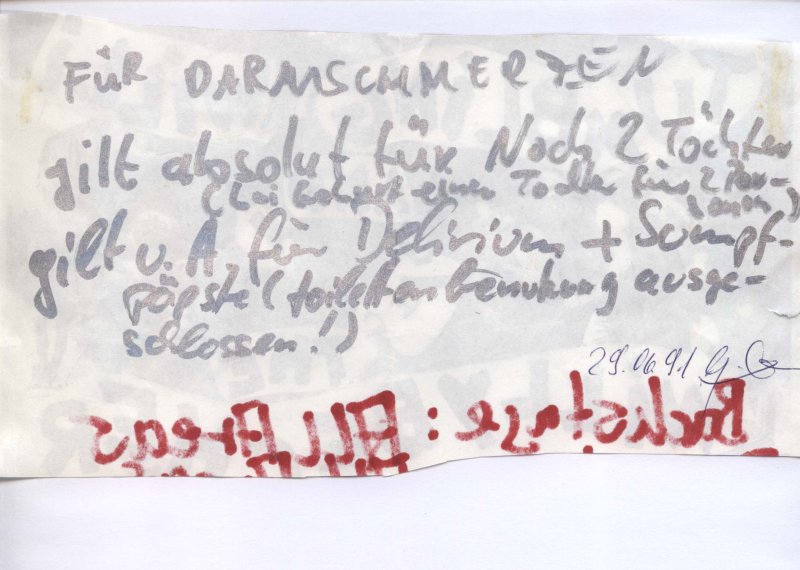 FÜR DARMSCHMERZEN
gilt absolut für Noch 2 Töchter
(bei Geburt einer Tochter für 2 Per-
sonen)
gilt v. A. für Delirium + Sumpf-
päpste (toilettenbenutzung ausge-
schlossen!)
29.06.91
Backstage: ALL Areas